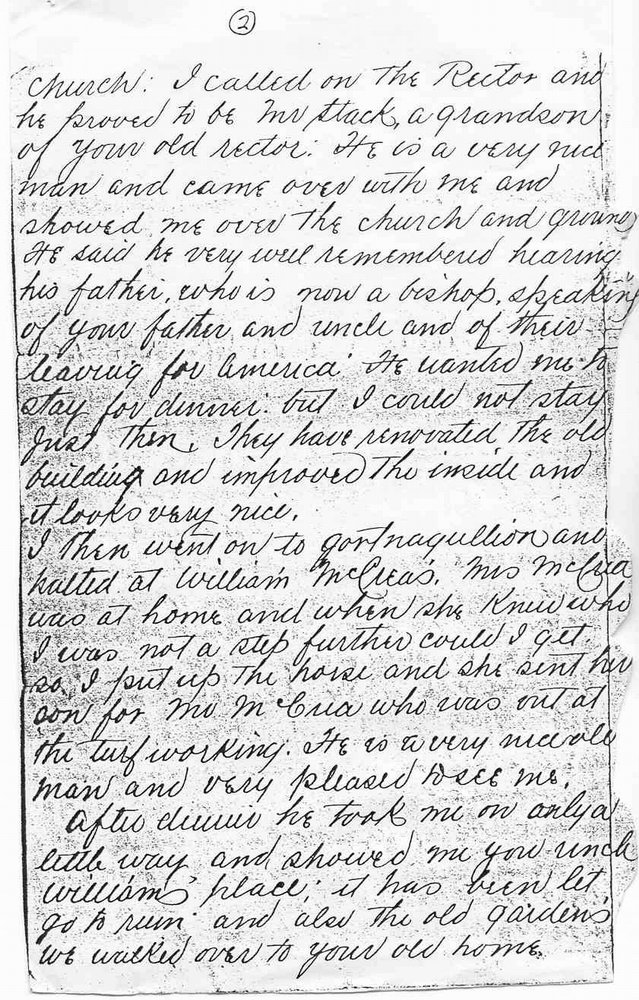 (2)
church. I called on the Rector and
he proved to be Mr Stack, a grandson
of your old rector. He is a very nice
man and came over with me and
showed me over the church and grounds
He said he very well remembered hearing
his father, who is now a bishop, speaking
of your father and uncle and of their
leaving for America. He wanted me to
stay for dinner. but I could not stay
just then. They have renovated the old
building and improved the inside and
it looks very nice.
I then went on to gortnagullion and
halted at William McCrea's. Mrs McCrea
was at home and when she knew who
I was not a step further could I get.
so I put up the horse and she sent her
son for Mr McCrea who was out at
the turf working. He is a very nice old
man and very pleased to see me.
After dinner he took me on only a
little way and showed me you uncle
William's place; it has been let
go to ruin and also the old gardens
we walked over to your old home.